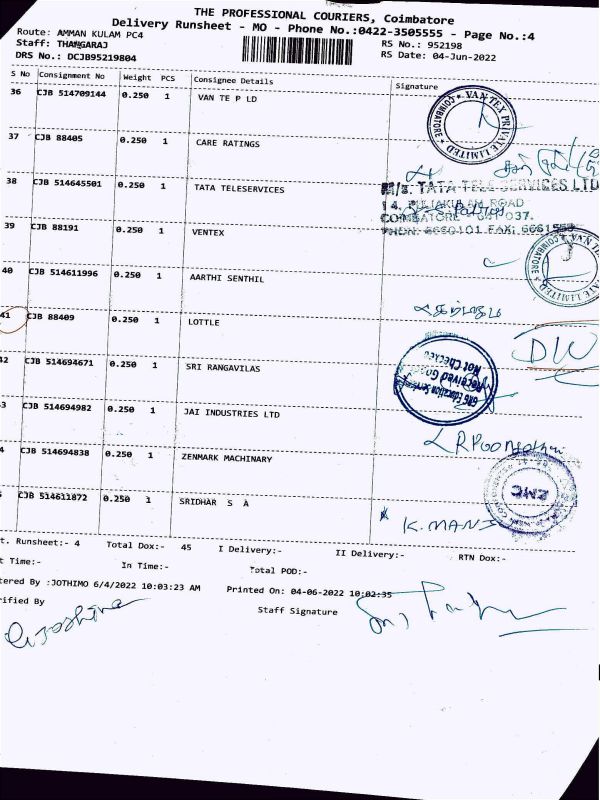 THE PROFESSIONAL COURIERS, Coimbatore
Delivery Runsheet - MO - Phone No.:0422-3505555 - Page No.:4
Route: AMMAN KULAM PC4
Staff: THANGARAJ RS No.: 952198
DRS No.: DCJB95219804 RS Date: 04-Jun-2022
S No Consignment No Weight PCS Consignee Details Signature
36 CJB 514709144 0.250 1 VAN TE P LD
VAN TEX PRIVATE LIMITED COIMBATORE
37 CJB 88405 0.250 1 CARE RATINGS
38 CJB 514645501 0.250 1 TATA TELESERVICES
M/s. TATA TELE SERVICES LTD
14, ROAD
COIMBATORE 037.
39 CJB 88191 0.250 1 VENTEX
40 CJB 514611996 0.250 1 AARTHI SENTHIL
41 CJB 88409 0.250 1 LOTTLE
DW
42 CJB 514694671 0.250 1 SRI RANGAVILAS
Received Goods
Not Checked
3 CJB 514694982 0.250 1 JAI INDUSTRIES LTD
4 CJB 514694838 0.250 1 ZENMARK MACHINARY
5 CJB 514611872 0.250 1 SRIDHAR S A
K. MANI
t. Runsheet:- 4 Total Dox:- 45 I Delivery:- II Delivery:- RTN Dox:-
t Time:- In Time:- Total POD:-
tered By :JOTHIMO 6/4/2022 10:03:23 AM Printed On: 04-06-2022 10:02:35
rified By Staff Signature